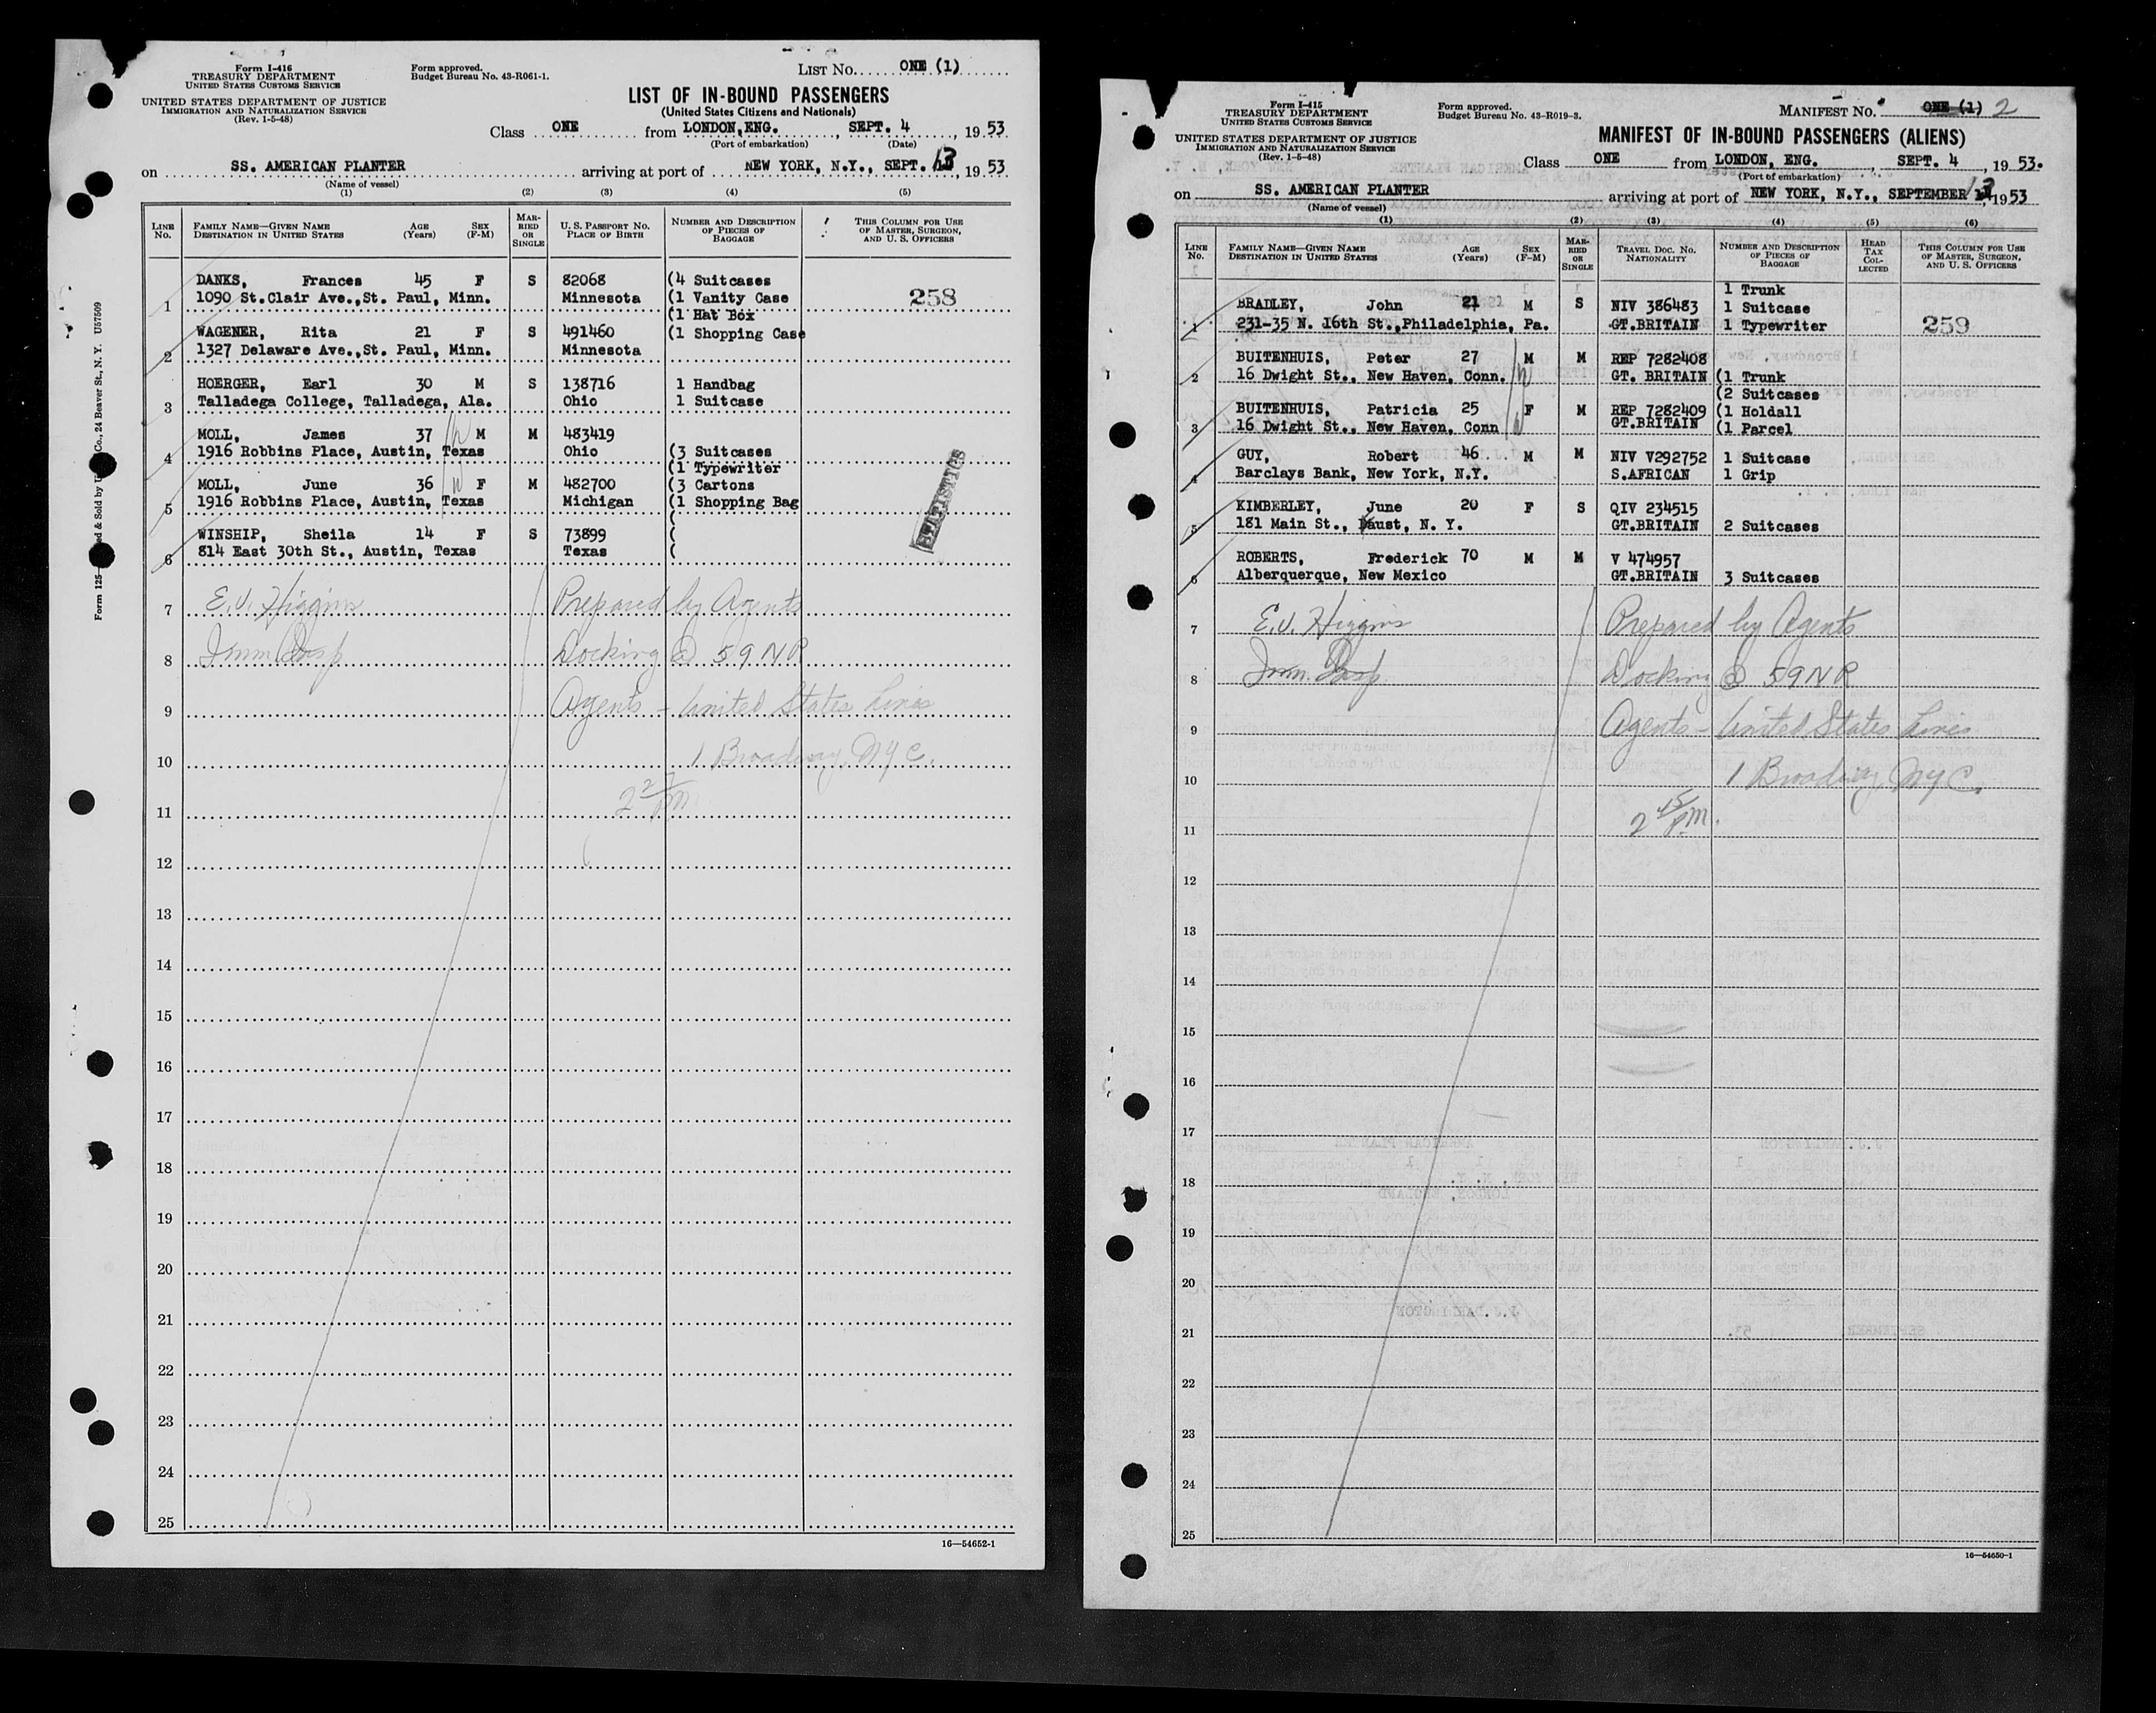 Form I-416
TREASURY DEPARTMENT
UNITED STATES CUSTOMS SERVICE
UNITED STATES DEPARTMENT OF JUSTICE
IMMIGRATION AND NATURALIZATION SERVICE
(Rev. 1-5-48)
Form approved.
Budget Bureau No. 43-R061-1.
LIST No. ONE (1)
LIST OF IN-BOUND PASSENGERS
(United States Citizens and Nationals)
Class ONE from LONDON, ENG., SEPT. 4, 1953
(Port of embarkation) (Date)
on SS. AMERICAN PLANTER arriving at port of NEW YORK, N.Y., SEPT. 13, 1953
(Name of vessel)
(1) (2) (3) (4) (5)
LINE No. FAMILY NAME—GIVEN NAME DESTINATION IN UNITED STATES AGE (Years) SEX (F-M) MARRIED OR SINGLE U. S. PASSPORT NO. PLACE OF BIRTH NUMBER AND DESCRIPTION OF PIECES OF BAGGAGE THIS COLUMN FOR USE OF MASTER, SURGEON, AND U. S. OFFICERS
DANKS, Frances 45 F S 82068 (4 Suitcases
1 1090 St.Clair Ave.,St. Paul, Minn. Minnesota (1 Vanity Case 258
(1 Hat Box
WAGENER, Rita 21 F S 491460 (1 Shopping Case
2 1327 Delaware Ave.,St. Paul, Minn. Minnesota
HOERGER, Earl 30 M S 138716 1 Handbag
3 Talladega College, Talladega, Ala. Ohio 1 Suitcase
MOLL, James 37 M M 483419
4 1916 Robbins Place, Austin, Texas Ohio (3 Suitcases
(1 Typewriter
MOLL, June 36 F M 482700 (3 Cartons
5 1916 Robbins Place, Austin, Texas Michigan (1 Shopping Bag
(
WINSHIP, Sheila 14 F S 73899 (
6 814 East 30th St., Austin, Texas Texas (
STATISTICS
7 E.J. Higgins Prepared by Agents
8 Imm Insp Docking @ 59 NR
9 Agents - United States Lines
10 1 Broadway, NYC.
11 PM
12
13
14
15
16
17
18
19
20
21
22
23
24
25
16—54652-1
Co., 24 Beaver St., N. Y. U57509
Form I-415
TREASURY DEPARTMENT
UNITED STATES CUSTOMS SERVICE
UNITED STATES DEPARTMENT OF JUSTICE
IMMIGRATION AND NATURALIZATION SERVICE
(Rev. 1-5-48)
Form approved.
Budget Bureau No. 43-R019-3.
MANIFEST No. ONE (1) 2
MANIFEST OF IN-BOUND PASSENGERS (ALIENS)
Class ONE from LONDON, ENG., SEPT. 4, 1953.
(Port of embarkation)
on SS. AMERICAN PLANTER arriving at port of NEW YORK, N.Y., SEPTEMBER 13, 1953
(Name of vessel)
(1) (2) (3) (4) (5) (6)
LINE No. FAMILY NAME—GIVEN NAME DESTINATION IN UNITED STATES AGE (Years) SEX (F-M) MARRIED OR SINGLE TRAVEL DOC. NO. NATIONALITY NUMBER AND DESCRIPTION OF PIECES OF BAGGAGE HEAD TAX COLLECTED THIS COLUMN FOR USE OF MASTER, SURGEON, AND U. S. OFFICERS
1 Trunk
BRADLEY, John 21 M S NIV 386483 1 Suitcase
1 231-35 N. 16th St.,Philadelphia, Pa. GT.BRITAIN 1 Typewriter 259
BUITENHUIS, Peter 27 M M REP 7282408
2 16 Dwight St., New Haven, Conn. GT. BRITAIN (1 Trunk
(2 Suitcases
BUITENHUIS, Patricia 25 F M REP 7282409 (1 Holdall
3 16 Dwight St., New Haven, Conn GT.BRITAIN (1 Parcel
GUY, Robert 46 M M NIV V292752 1 Suitcase
4 Barclays Bank, New York, N.Y. S.AFRICAN 1 Grip
KIMBERLEY, June 20 F S QIV 234515
5 181 Main St., Faust, N. Y. GT.BRITAIN 2 Suitcases
ROBERTS, Frederick 70 M M V 474957
6 Alberquerque, New Mexico GT.BRITAIN 3 Suitcases
7 E.J. Higgins Prepared by Agents
8 Imm. Insp Docking @ 59 NR
9 Agents - United States Lines
10 1 Broadway, NYC.
11 2 45 P.M.
12
13
14
15
16
17
18
19
20
21
22
23
24
25
16—54650-1